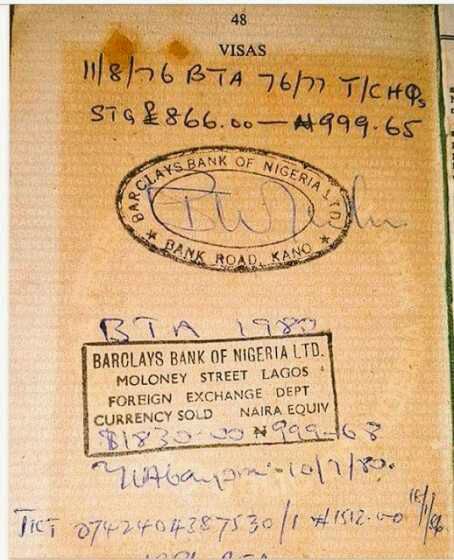 48
VISAS
11/8/76 BTA 76/77 T/CHQs
STG £866.00 — ₦999.65
BARCLAYS BANK OF NIGERIA LTD.
★ BANK ROAD, KANO ★
BTA 1980
BARCLAYS BANK OF NIGERIA LTD.
MOLONEY STREET LAGOS
FOREIGN EXCHANGE DEPT
CURRENCY SOLD NAIRA EQUIV
$1830.00 ₦999.68
10/7/80.
TKT 0742404387530/1 ₦1512.00